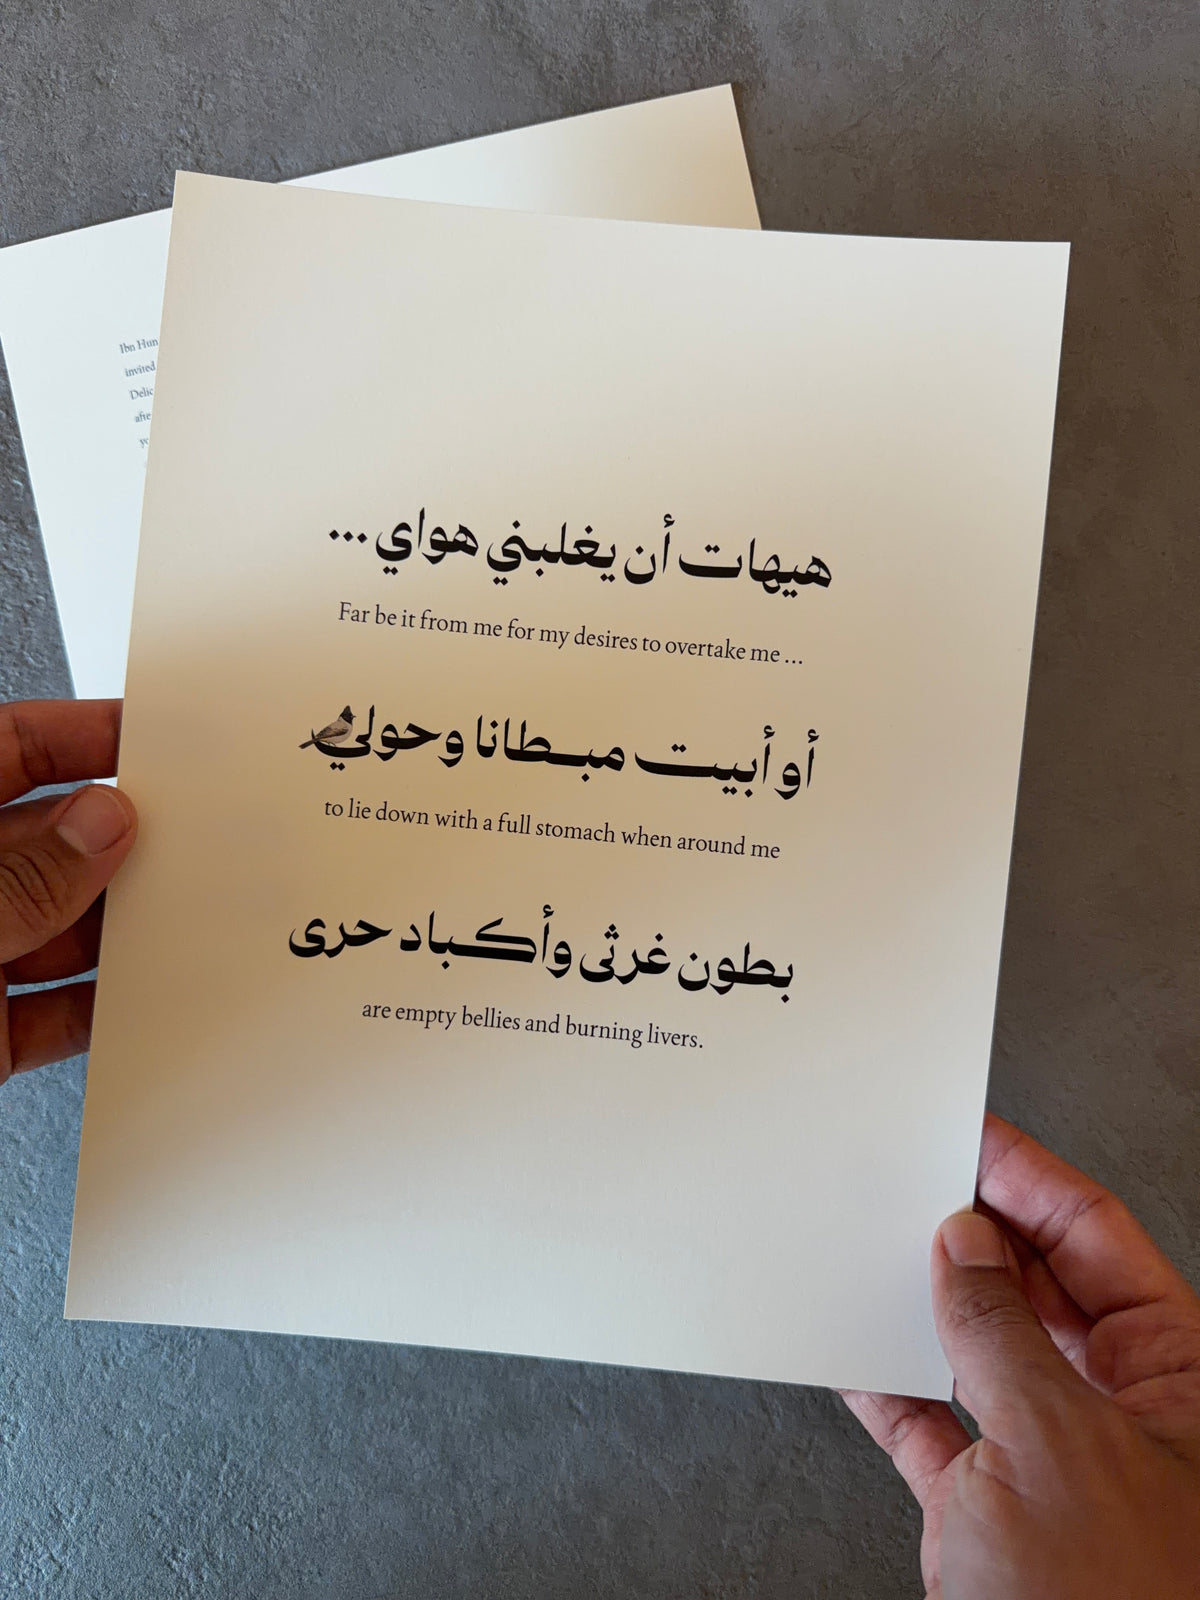 Ibn Hun
invited
Delic
afte
yo
هيهات أن يغلبني هواي ...
Far be it from me for my desires to overtake me ...
أو أبيت مبـطانا وحولي
to lie down with a full stomach when around me
بطون غرثى وأكباد حرى
are empty bellies and burning livers.